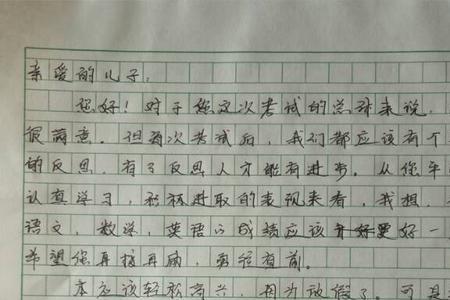 亲爱的儿子:
您好!对于您这次考试的总体来说,
很满意。但每次考试后,我们都应该有个
的反思,有了反思人才能有进步。从你平
认真学习,积极进取的表现来看,我想,
语文,数学,英语的成绩应该更好一
希望您再接再厉,勇往直前。
本应该轻松高兴,因为放假了,可是